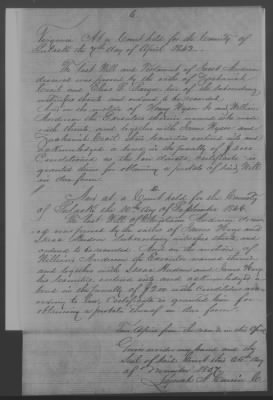 6
Virginia At a Court held for the County of
Pulaski the 7th day of April 1842.
The last Will and Testament of Jacob Anderson
deceased was proved by the oaths of Zachariah
Cecil and Elias S. two of the subscribing
witnesses thereto and ordered to be recorded
And on the motion of Henry Hyser Sr and William
Anderson the Executors therein named who made
oath thereto, and together with James Hyser and
Zachariah Cecil their securities entered into and
acknowledged a bond in the penalty of $
Conditioned as the law directs, Certificate is
granted them for obtaining a probate of said Will
in due form.
And at a Court held for the County
of Pulaski the 10th day of September 1846.
The last Will of Christian Anderson decd
was proved by the oaths of James Hoge and
Isaac Hudson Subscribing witnesses thereto and
ordered to be recorded. And on the motion of
William Anderson the Executor named therein
and together with Isaac Hudson and James Hoge
his securities entered into and acknowledged a
bond in the penalty of $200 with Condition
according to law, Certificate is granted him for
obtaining a probate thereof in due form.
from the records in this office
Given under my hand and the
Seal of said Court this 26th day
of November 1857